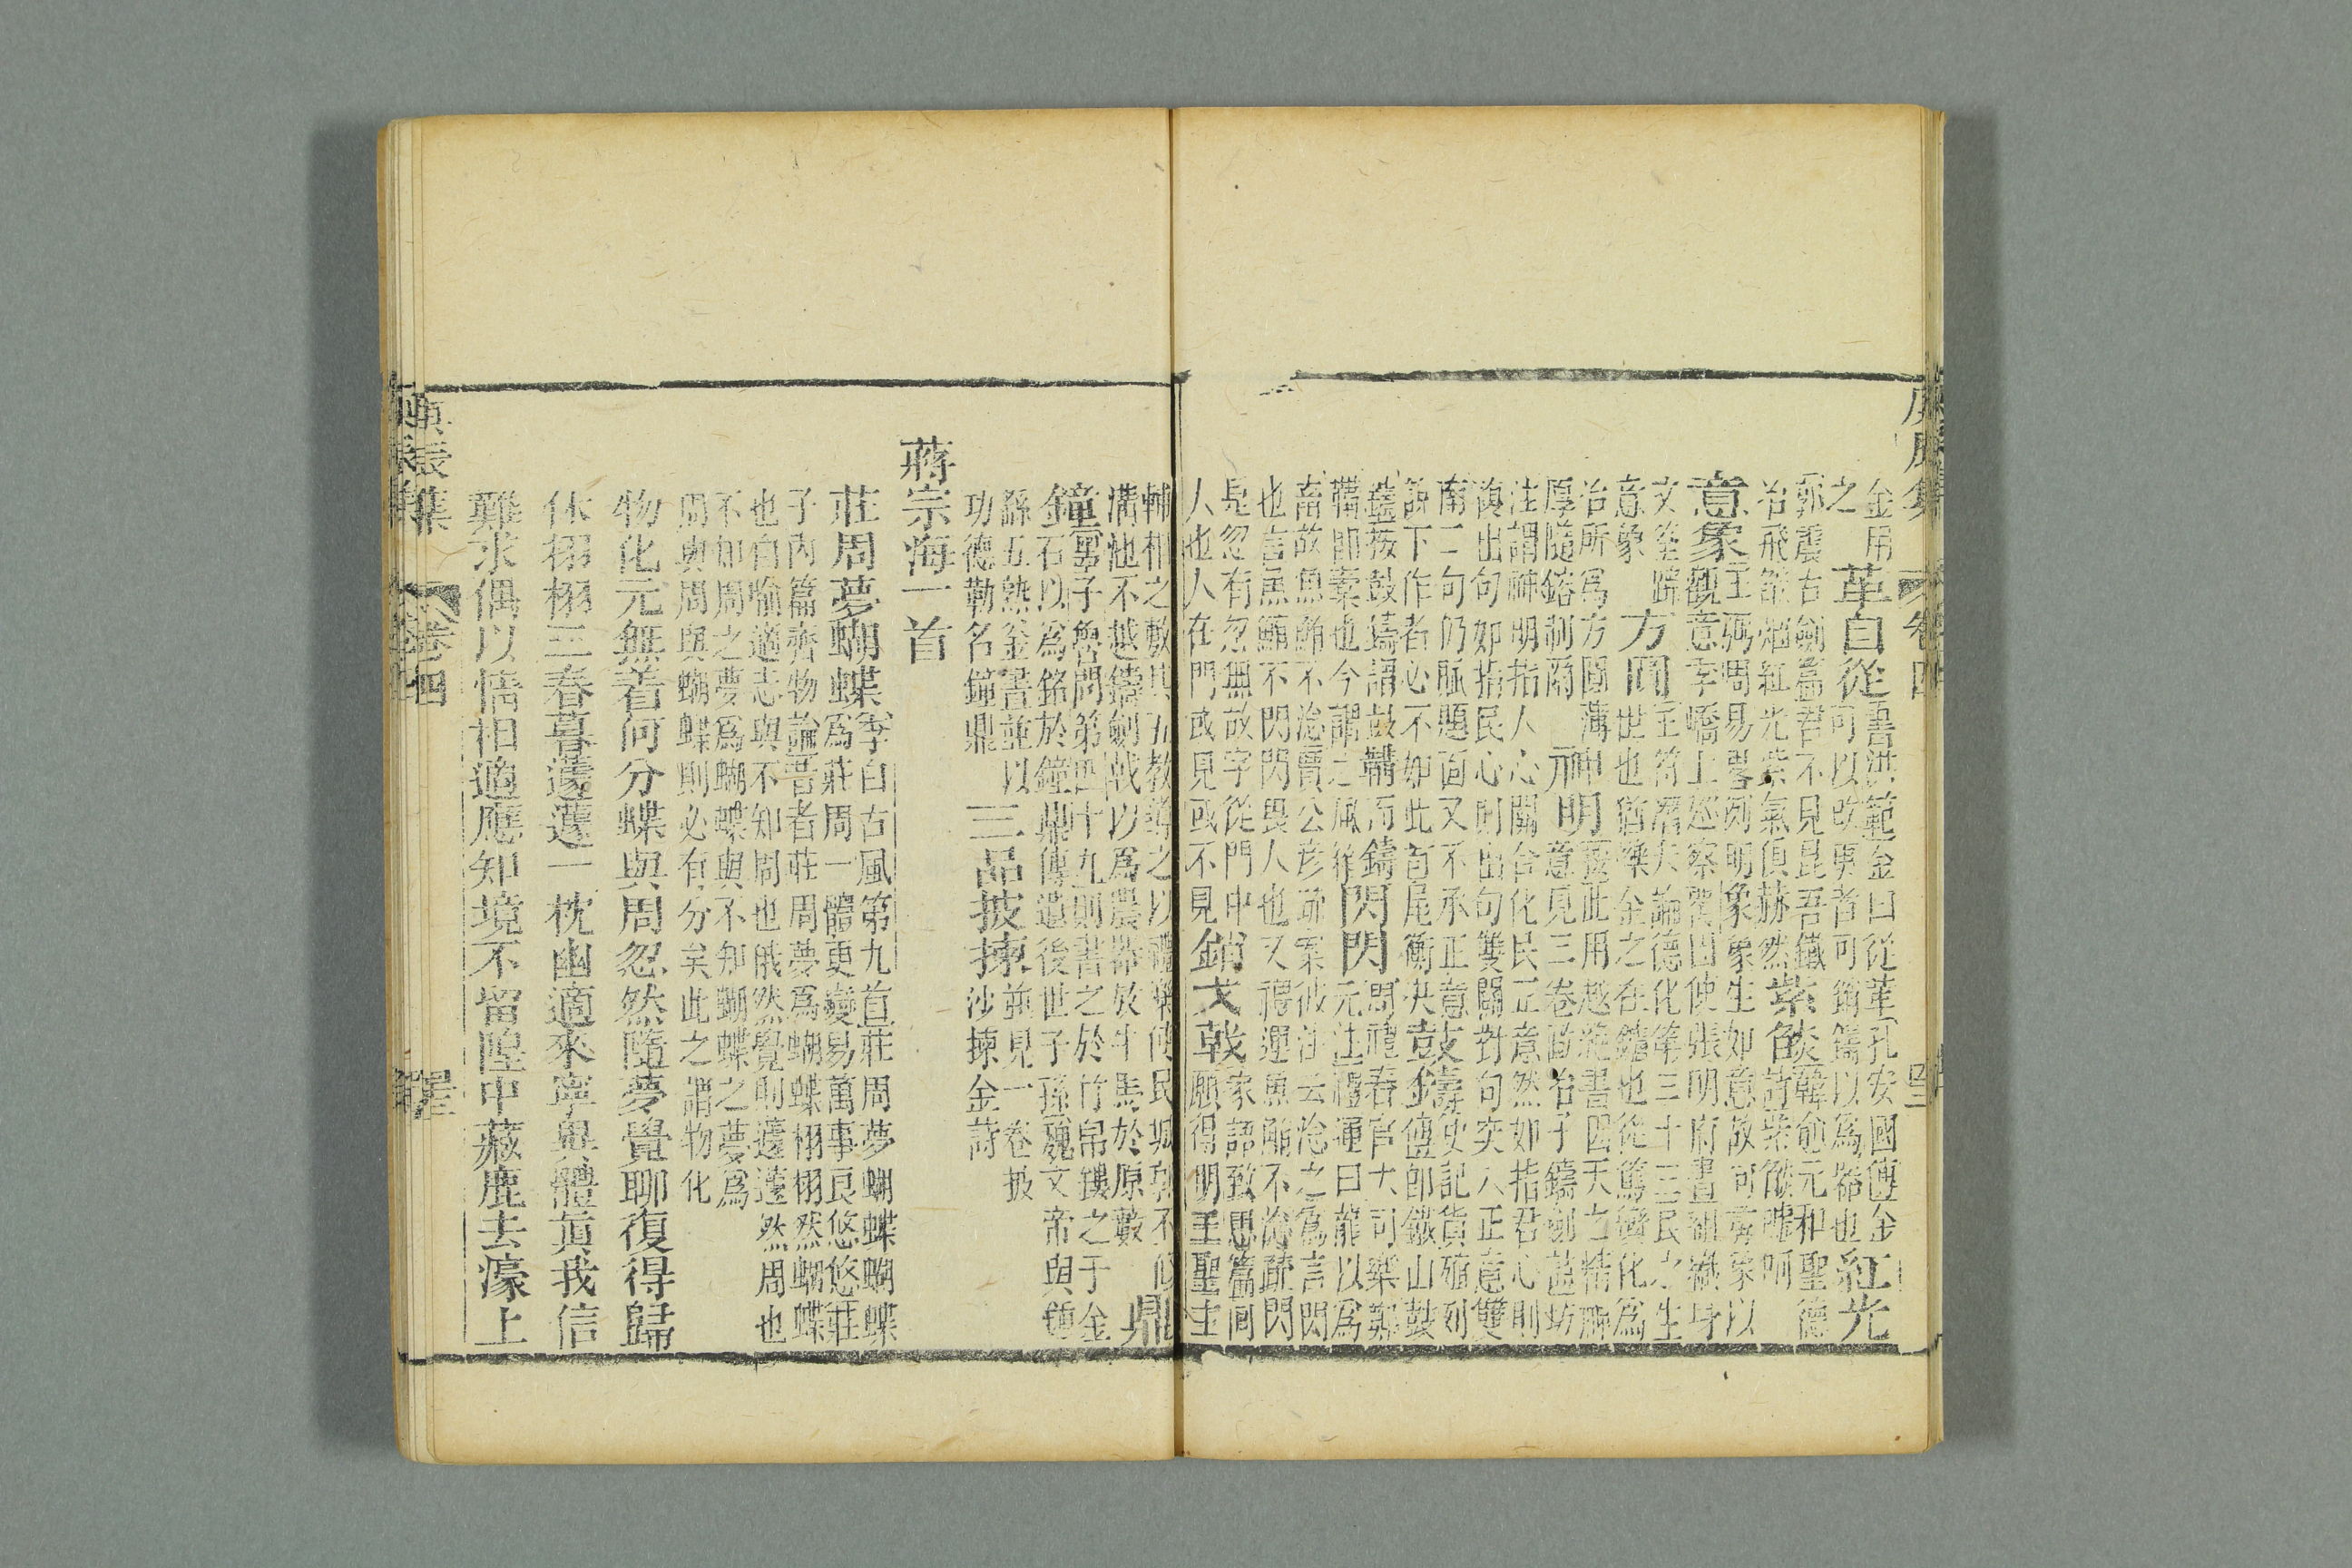 庚辰集 卷四
金用
之
革自從
書洪範金曰從革孔安國傳金
可以改更者可銷鑄以爲器也
紅光
郭震古劍篇君不見昆吾鐵
冶飛燄烟紅光紫氣俱赫然
紫燄
韓愈元和聖德
詩紫燄噓呵
意象
王弼周易畧例明象象生如意故可尋象以
觀意李嶠上巡察覆囚使張明府書雕組緘身
文筌蹄
意象
方圓
王符潛夫論德化第三十三民之生
世也猶爍金之在鑪也從篤變化爲
冶所爲方圓薄
厚隨鎔制爾
神明
按此用越絶書因天之精神
意見三卷政治子鑄劍並妨
注謂神明指人心關合化民正意然如指君心則
複出句如指民心則出句雙關對句突入正意雙
南二句仍脈題面又不承正意
諒下作者必不如此首尾衡決
鼓鑄
史記貨殖列
傳卽鐵山鼓
鑄按鼓鑄謂鼓鞴而鑄
鞴卽橐也今謂之風箱
閃閃
周禮春官大司樂鄭
元注禮運曰龍以爲
畜故魚鮪不淰賈公彥疏案彼注云淰之爲言閃
也言魚鮪不閃閃畏人也又禮運魚鮪不淰疏閃
是忽有忽無故字從門中
人也人在門或見或不見
銷戈戟
家語致思篇回
願得明王聖主
輔相之敷其五教導之以禮樂使民城郭不修
溝池不越鑄劍戟以爲農器放牛馬於原藪
鼎
鐘
墨子魯問第四十九則書之於竹帛鏤之于金
石以爲銘於鐘鼎傳遺後世子孫魏文帝與鍾
繇五熟釜書並以
功德勒名鐘鼎
三品披揀
前見一卷披
沙揀金詩
蔣宗海一首
莊周夢蝴蝶
李白古風第九首莊周夢蝴蝶蝴蝶
爲莊周一體更變易萬事良悠悠莊
子內篇齊物論昔者莊周夢爲蝴蝶栩栩然蝴蝶
也自喻適志與不知周也俄然覺則蘧蘧然周也
不知周之夢爲蝴蝶與不知蝴蝶之夢爲
周與周與蝴蝶則必有分矣此之謂物化
物化元無着何分蝶與周忽然隨夢覺聊復得歸
休栩栩三春暮蘧蘧一枕幽適來寧異體眞我信
難求偶以情相適應知境不留隍中藏鹿去濠上
庚辰集 卷四